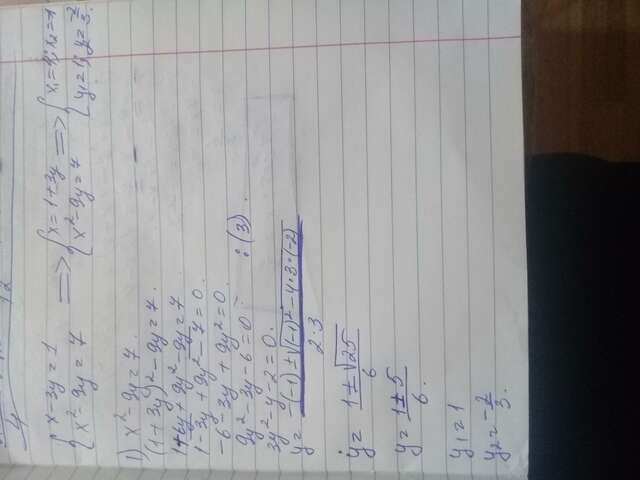 { x-3y=1 => { x=1+3y => { x₁=4; x₂=-1
{ x²-9y=7 { x²-9y=7 { y₁=1; y₂=-2/3.
1) x²-9y=7.
(1+3y)²-9y=7.
1+6y+9y²-9y=7
1-3y+9y²-7=0.
-6-3y+9y²=0.
9y²-3y-6=0 :(3).
3y²-y-2=0.
y= -(-1)±√(-1)²-4·3·(-2) / 2·3
y= 1±√25 / 6
y= 1±5 / 6.
y₁=1
y₂=-2/3.